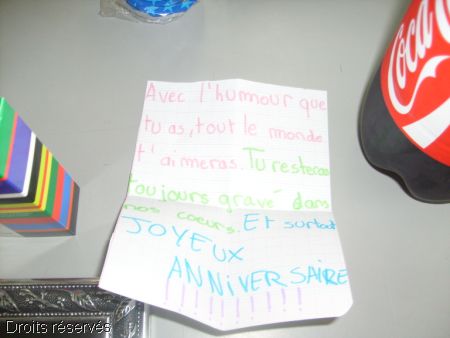 Avec l'humour que
tu as, tout le monde
t'aimeras. Tu resteras
toujours gravé dans
nos coeurs. Et surtout
JOYEUX
ANNIVERSAIRE
!!!!!!!!!!
Coca
Droits réservés